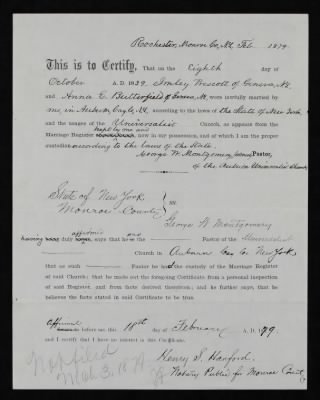 Rochester, Monroe Co, N.Y. Feb. 1879.
This is to Certify, That on the Eighth day of
October A. D. 1839. Wescott of Geneva, N.Y.
and Anna E. Butterfield of Geneva, N.Y. were lawfully married by
me, in Auburn, Cayuga, N.Y., according to the laws of the State of New York,
and the usages of the Universalist Church, as appears from the
Marriage Register kept by me and now in my possession, and of which I am the proper
custodian according to the laws of the State.
George W. Montgomery, former Pastor,
of the Auburn Universalist Church
State of New York
Monroe County } ss:
George W Montgomery
having been duly affirmed says that he is the Pastor of the Universalist
Church in Auburn New York,
that as such Pastor he had the custody of the Marriage Register
of said Church; that he made out the foregoing Certificate from a personal inspection
of said Register, and from facts derived therefrom; and he further says, that he
believes the facts stated in said Certificate to be true.
Affirmed before me this 18th day of February A. D. 1879
and I certify that I have no interest in this Certificate.
Henry S. Hanford.
Notary Public for Monroe County
Not filed
Mch 3, 1879